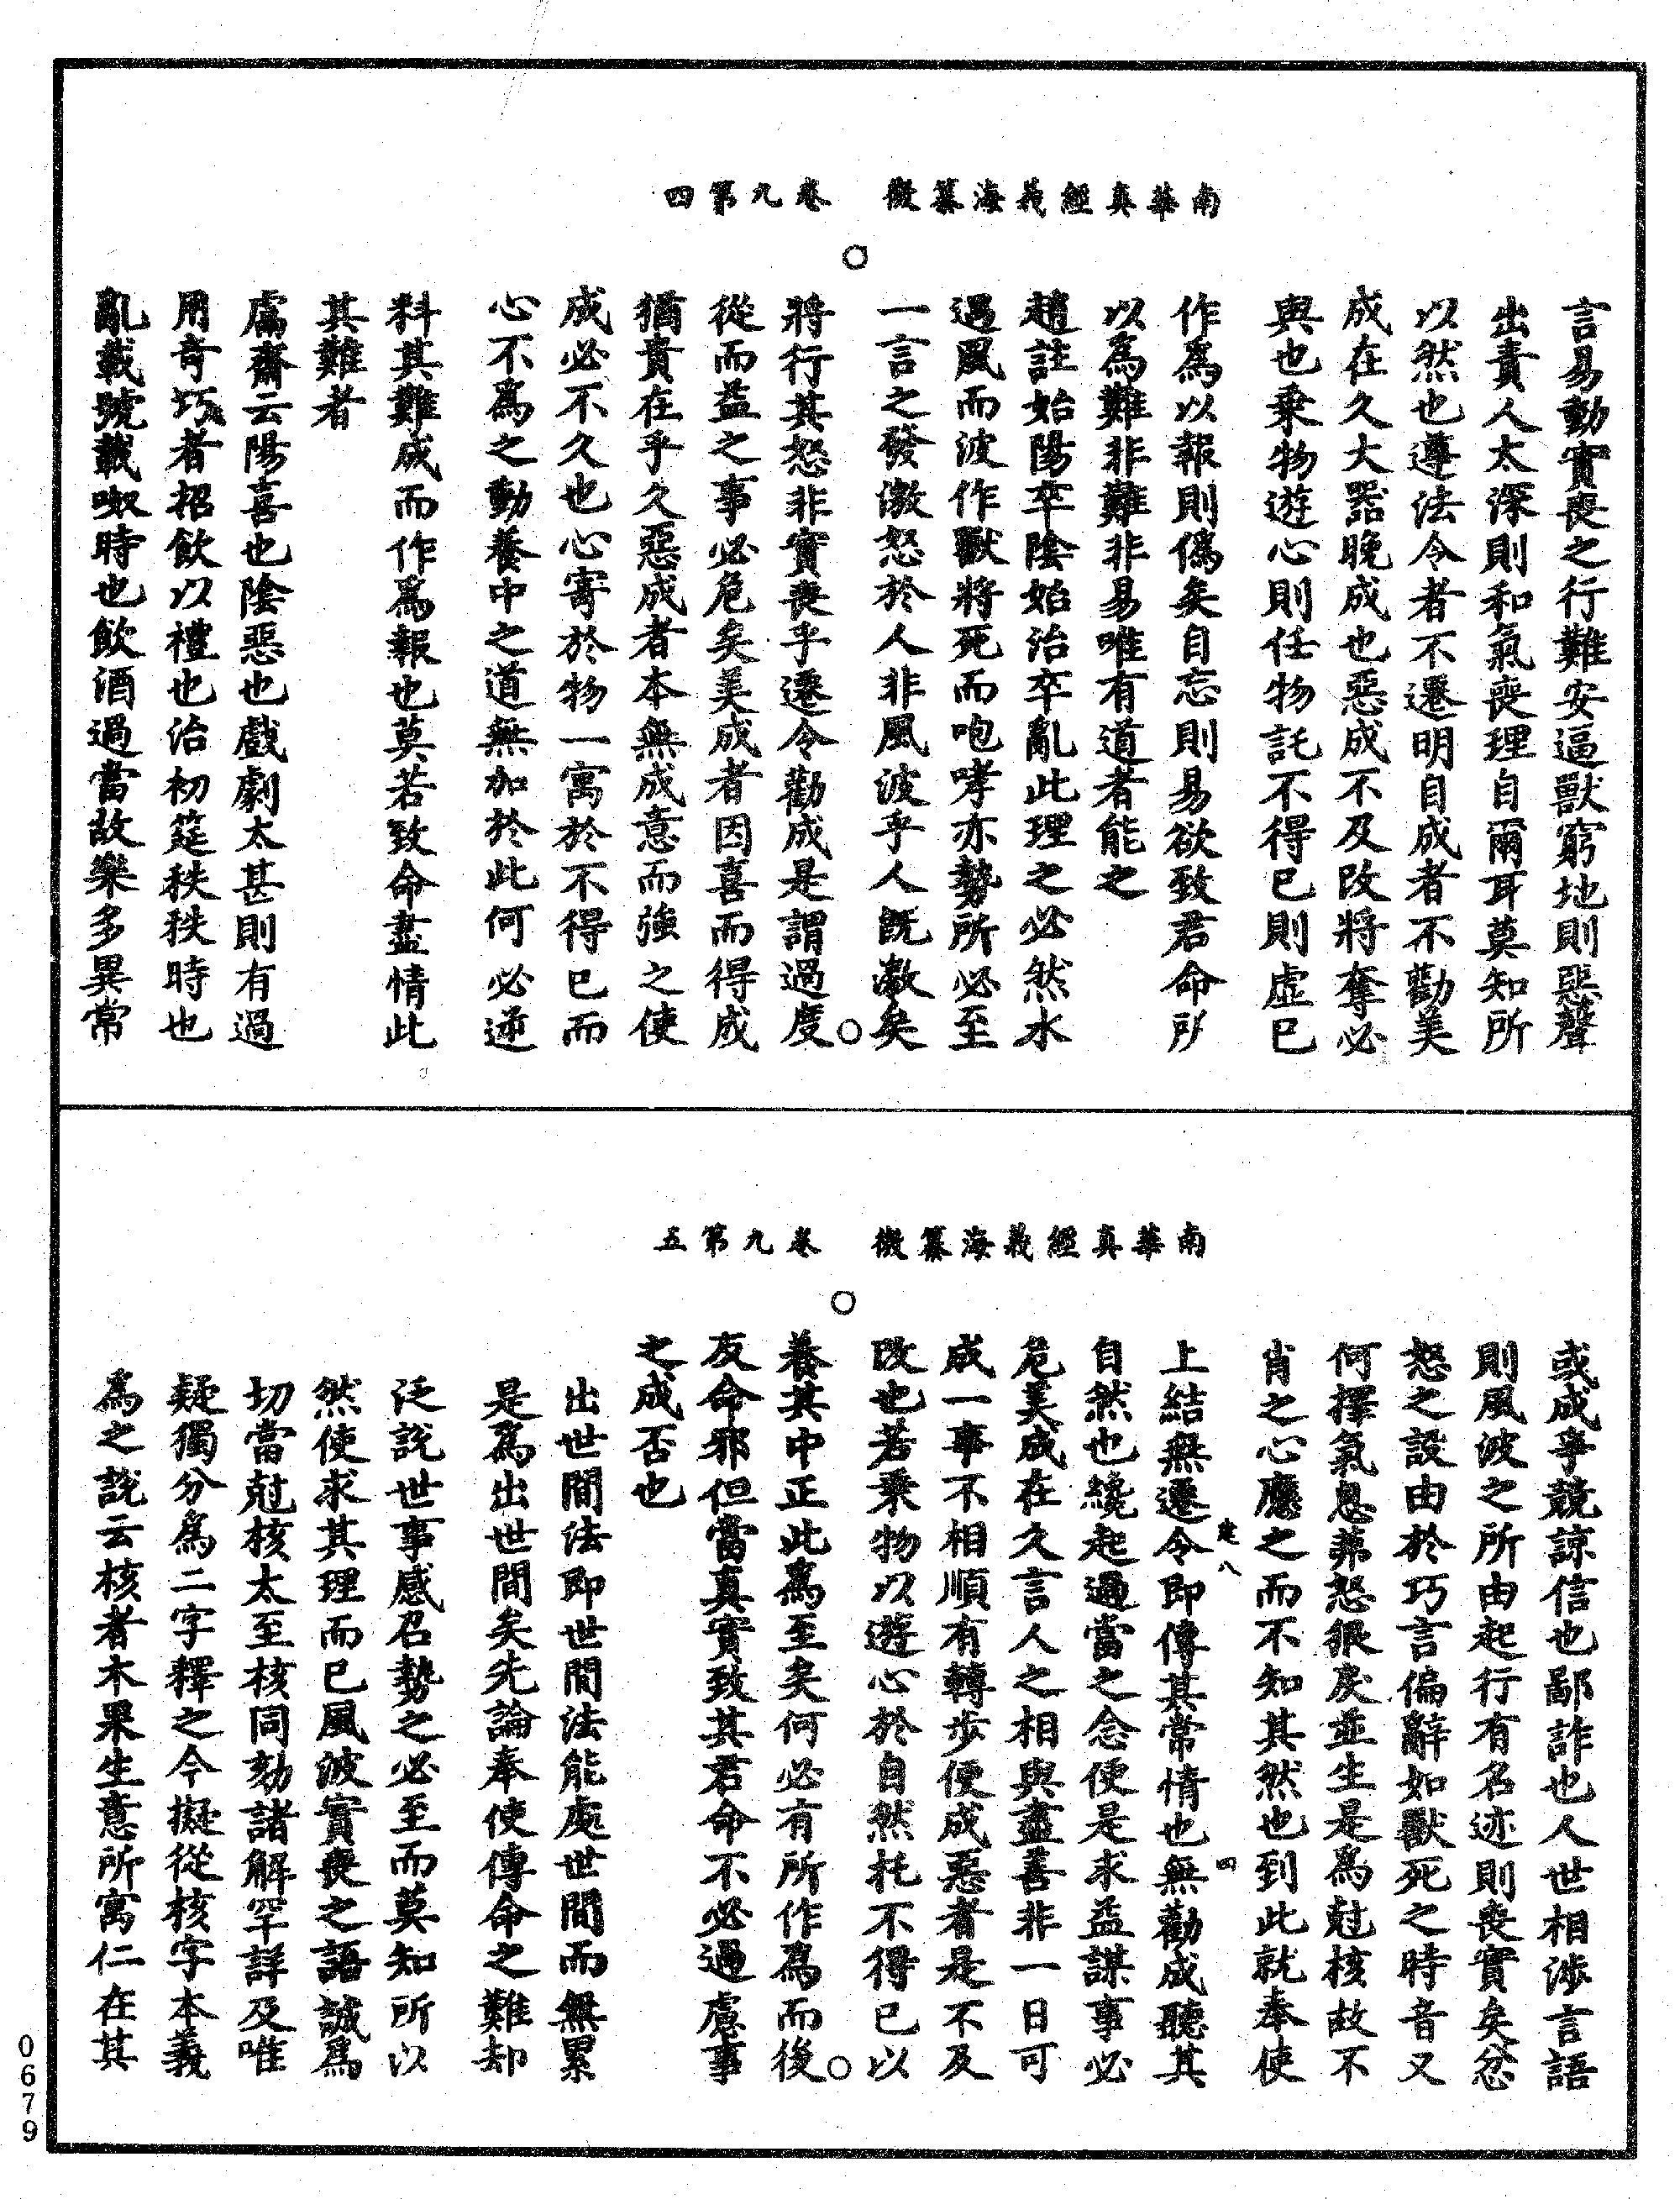 南華真經義海纂微　卷九第四
言易動實喪之行難安逼獸窮地則惡聲
出責人太深則和氣喪理自爾耳莫知所
以然也遵法令者不遷明自成者不勸美
成在久大器晚成也惡成不及改將奪必
與也乗物遊心則任物託不得已則虛已
作爲以報則僞矣自忘則易欲致君命所
以爲難非難非易唯有道者能之
趙註始陽卒陰始治卒亂此理之必然水
遇風而波作獸將死而咆哮亦勢所必至
一言之發激怒於人非風波乎人旣激矣
將行其怒非實喪乎遷令勸成是謂過度
從而益之事必危矣美成者因喜而得成
猶貴在乎久惡成者本無成意而強之使
成必不久也心寄於物一寓於不得已而
心不爲之動養中之道無加於此何必逆
料其難成而作爲報也莫若致命盡情此
其難者
鬳齋云陽喜也陰惡也戲劇太甚則有過
用奇巧者招飲以禮也治初筵秩秩時也
亂載號載呶時也飲酒過當故樂多異常
南華真經義海纂微　卷九第五
或成爭競諒信也鄙詐也人世相涉言語
則風波之所由起行有名迹則喪實矣忿
怒之設由於巧言偏辭如獸死之時音又
何擇氣息茀怒狠戾並生是爲尅核故不
肖之心應之而不知其然也到此就奉使
定八　四
上結無遷令即傳其常情也無勸成聽其
自然也纔起過當之念便是求益謀事必
危美成在久言人之相與盡善非一日可
成一事不相順有轉步便成惡者是不及
改也若乗物以遊心於自然托不得已以
養其中正此爲至矣何必有所作爲而後
友命邪但當真實致其君命不必過慮事
之成否也
出世間法即世間法能處世間而無累
是爲出世間矣先論奉使傳命之難却
泛說世事感召勢之必至而莫知所以
然使求其理而已風波實喪之語誠爲
切當尅核太至核同劾諸解罕詳及唯
疑獨分爲二字釋之今擬從核字本義
爲之說云核者木果生意所寓仁在其
0679